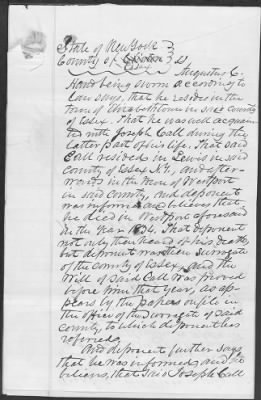 State of New York }
County of Essex } SS
Augustus C.
Hand being sworn according to
law says, that he resides in the
town of Elizabethtown in said County
of Essex. That he was well acquain
ted with Joseph Call during the
latter part of his life. That said
Call resided in Lewis in said
County of Essex N.Y., and after-
wards in the town of Westport
in said county, and deponent
was informed and believes that
he died in Westport aforesaid
in the Year 1834. That deponent
not only then heard of his death,
but deponent was then Surrogate
of the county of Essex, and the
Will of said Call was proved
before him that year, as ap-
pears by the papers on file in
the office of the Surrogate of said
county, to which deponent has
referred.
And deponent further says
that he was informed and
believes, that said Joseph Call